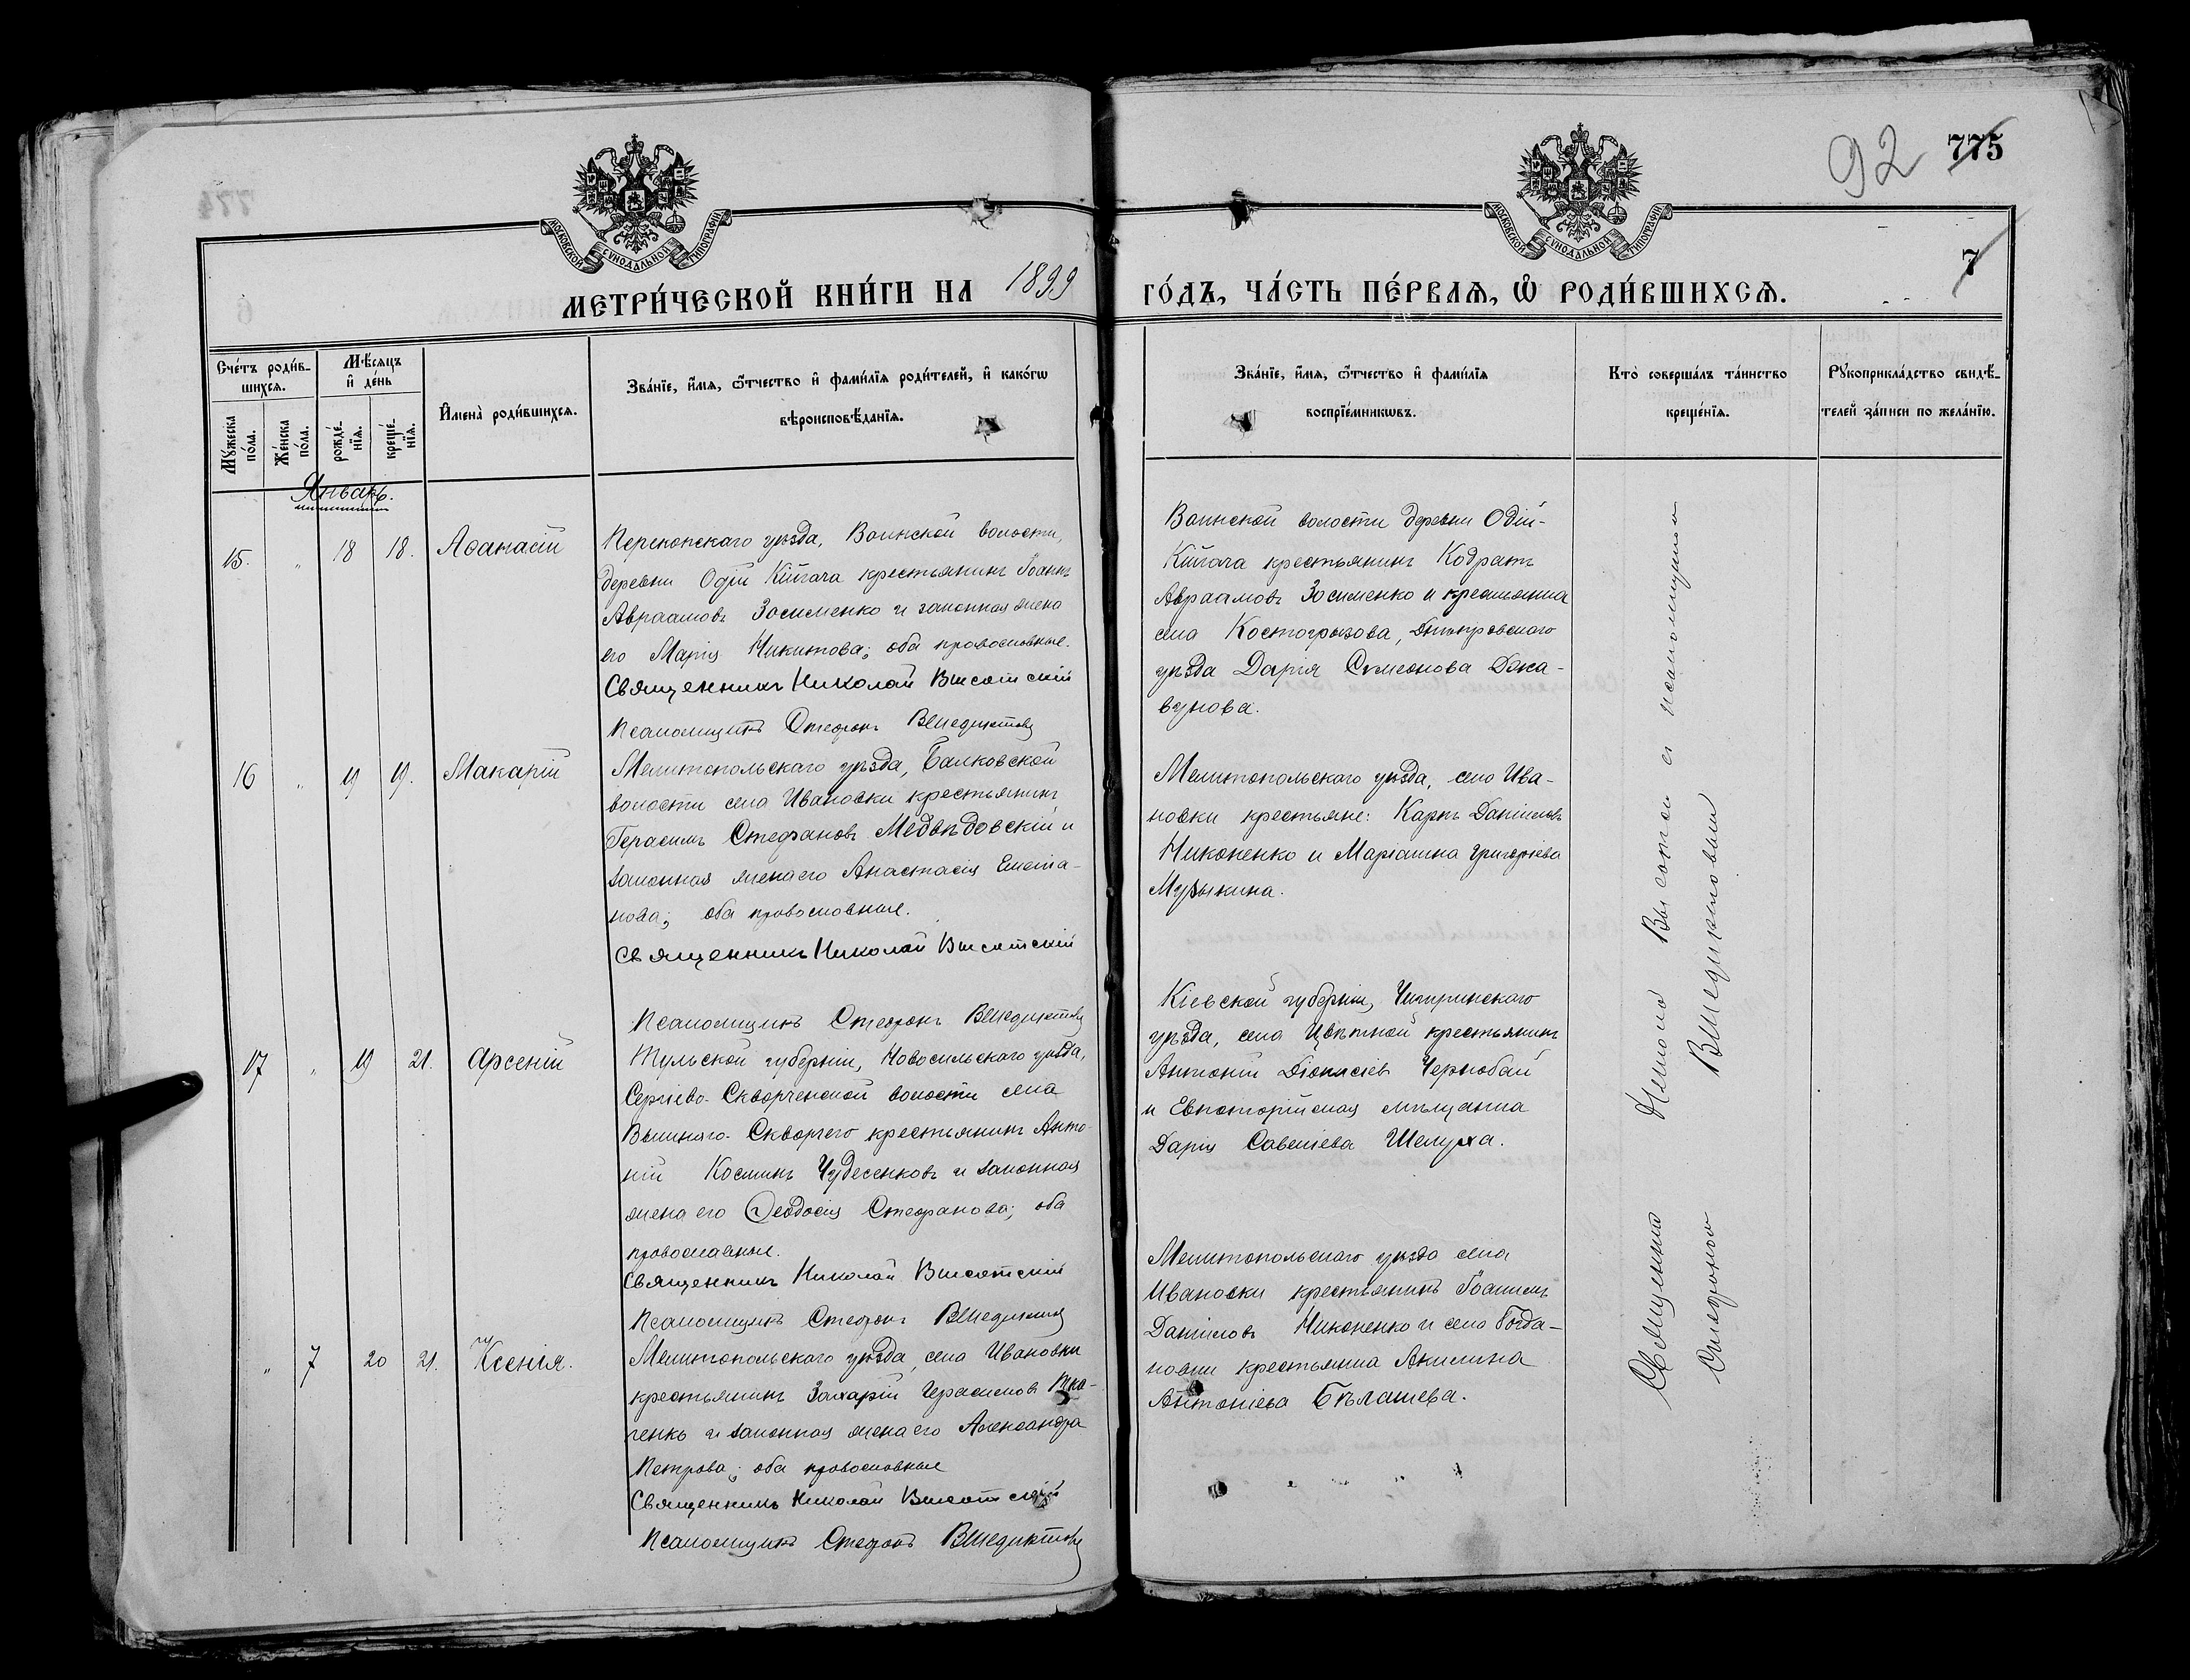 92 775
7
МОСКОВСКОЙ СѴНОДАЛЬНОЙ ТИПОГРАФІИ
МОСКОВСКОЙ СѴНОДАЛЬНОЙ ТИПОГРАФІИ
МЕТРИ́ЧЕСКОЙ КНИ́ГИ НА 1899 ГО́ДЪ, ЧА́СТЬ ПЕ́РВАѦ, Ѿ РОДИ́ВШИХСѦ.
Сче́тъ роди́в-
шихсѧ.
Мꙋ́жеска по́ла.
Же́нска по́ла.
Мѣ́сѧцъ
и҆ де́нь
рожде́-
нїѧ.
креще́-
нїѧ.
И҆мена̀ роди́вшихсѧ.
Зва́нїе, и҆́мѧ, ѻ҆́тчество и҆ фами́лїѧ роди́телей, и҆ како́гѡ
вѣроисповѣ́данїѧ.
Зва́нїе, и҆́мѧ, ѻ҆́тчество и҆ фами́лїѧ
воспрїе́мникѡвъ.
Кто̀ соверша́лъ та́инство
креще́нїѧ.
Рꙋкоприкла́дство свидѣ́-
телей за́писи по жела́нїю.
Январь.
15. " 18 18. Аѳанасій
Перекопскаго уѣзда, Воинской волости,
деревни Одій Кійгача крестьянинъ Іоаннъ
Авраамовъ Зосименко и законная жена
его Марія Никитова; оба православные.
Священникъ Николай Высотскій
Псаломщикъ Стефанъ Венедиктовъ
Воинской волости деревни Одій-
Кійгача крестьянинъ Кодратъ
Авраамовъ Зосименко и крестьянка
села Костогрызова, Днѣпровскаго
уѣзда Дарія Симеонова Дока-
вунова.
16 " 19 19. Макарій
Мелитопольскаго уѣзда, Балковской
волости села Ивановки крестьянинъ
Герасимъ Стефановъ Медвѣдовскій и
законная жена его Анастасія Емелиа-
нова; оба православные.
Священникъ Николай Высотскій
Псаломщикъ Стефанъ Венедиктовъ
Мелитопольскаго уѣзда, села Ива-
новки крестьяне: Карпъ Даніиловъ
Никоненко и Маріамна Григорьева
Музыкина.
17 " 19 21. Арсеній
Тульской губерніи, Новосильскаго уѣзда,
Сергіево-Скворченской волости села
Вышняго-Скворчего крестьянинъ Анто-
ній Косминъ Чудесенковъ и законная
жена его Ѳеодосія Стефанова; оба
православные.
Священникъ Николай Высотскій
Псаломщикъ Стефанъ Венедиктовъ
Кіевской губерніи, Чигиринскаго
уѣзда, села Цвѣтной крестьянинъ
Антоній Діонисіевъ Чернобай
и Евпаторійская мѣщанка
Дарія Савеліева Шелуха.
" 7 20 21. Ксенія.
Мелитопольскаго уѣзда, села Ивановки
крестьянинъ Захарій Герасимов Тка-
ченко и законная жена его Александра
Петрова; оба православные
Священникъ Николай Высотскій
Псаломщикъ Стефанъ Венедиктовъ
Мелитопольскаго уѣзда села
Ивановки крестьянинъ Іоаннъ
Даніиловъ Никоненко и села Богда-
новки крестьянка Акилина
Антоніева Бѣлашева.
Священникъ Николай Высотскій съ псаломщикомъ
Стефаномъ Венедиктовымъ